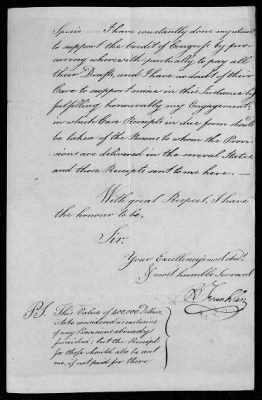 Specie — I have constantly done my utmost
to support the Credit of Congress by pro-
curing wherewith punctually to pay all
their Drafts, and I have no doubt of their
Care to support mine in this Instance by
fulfilling honourably my Engagement,
in which Case Receipts in due form should
be taken of the Persons to whom the Provi-
sions are delivered in the several States,
and those Receipts sent to me here. —
With great Respect, I have
the honour to be,
Sir,
Your Excellency's most obedt.
& most humble Servant
B Franklin
P.S. This Value of 400,000 Dollars
is to be considered as exclusive
of any Provisions already
furnished; but the Receipts
for those should also be sent
me, if not paid for there